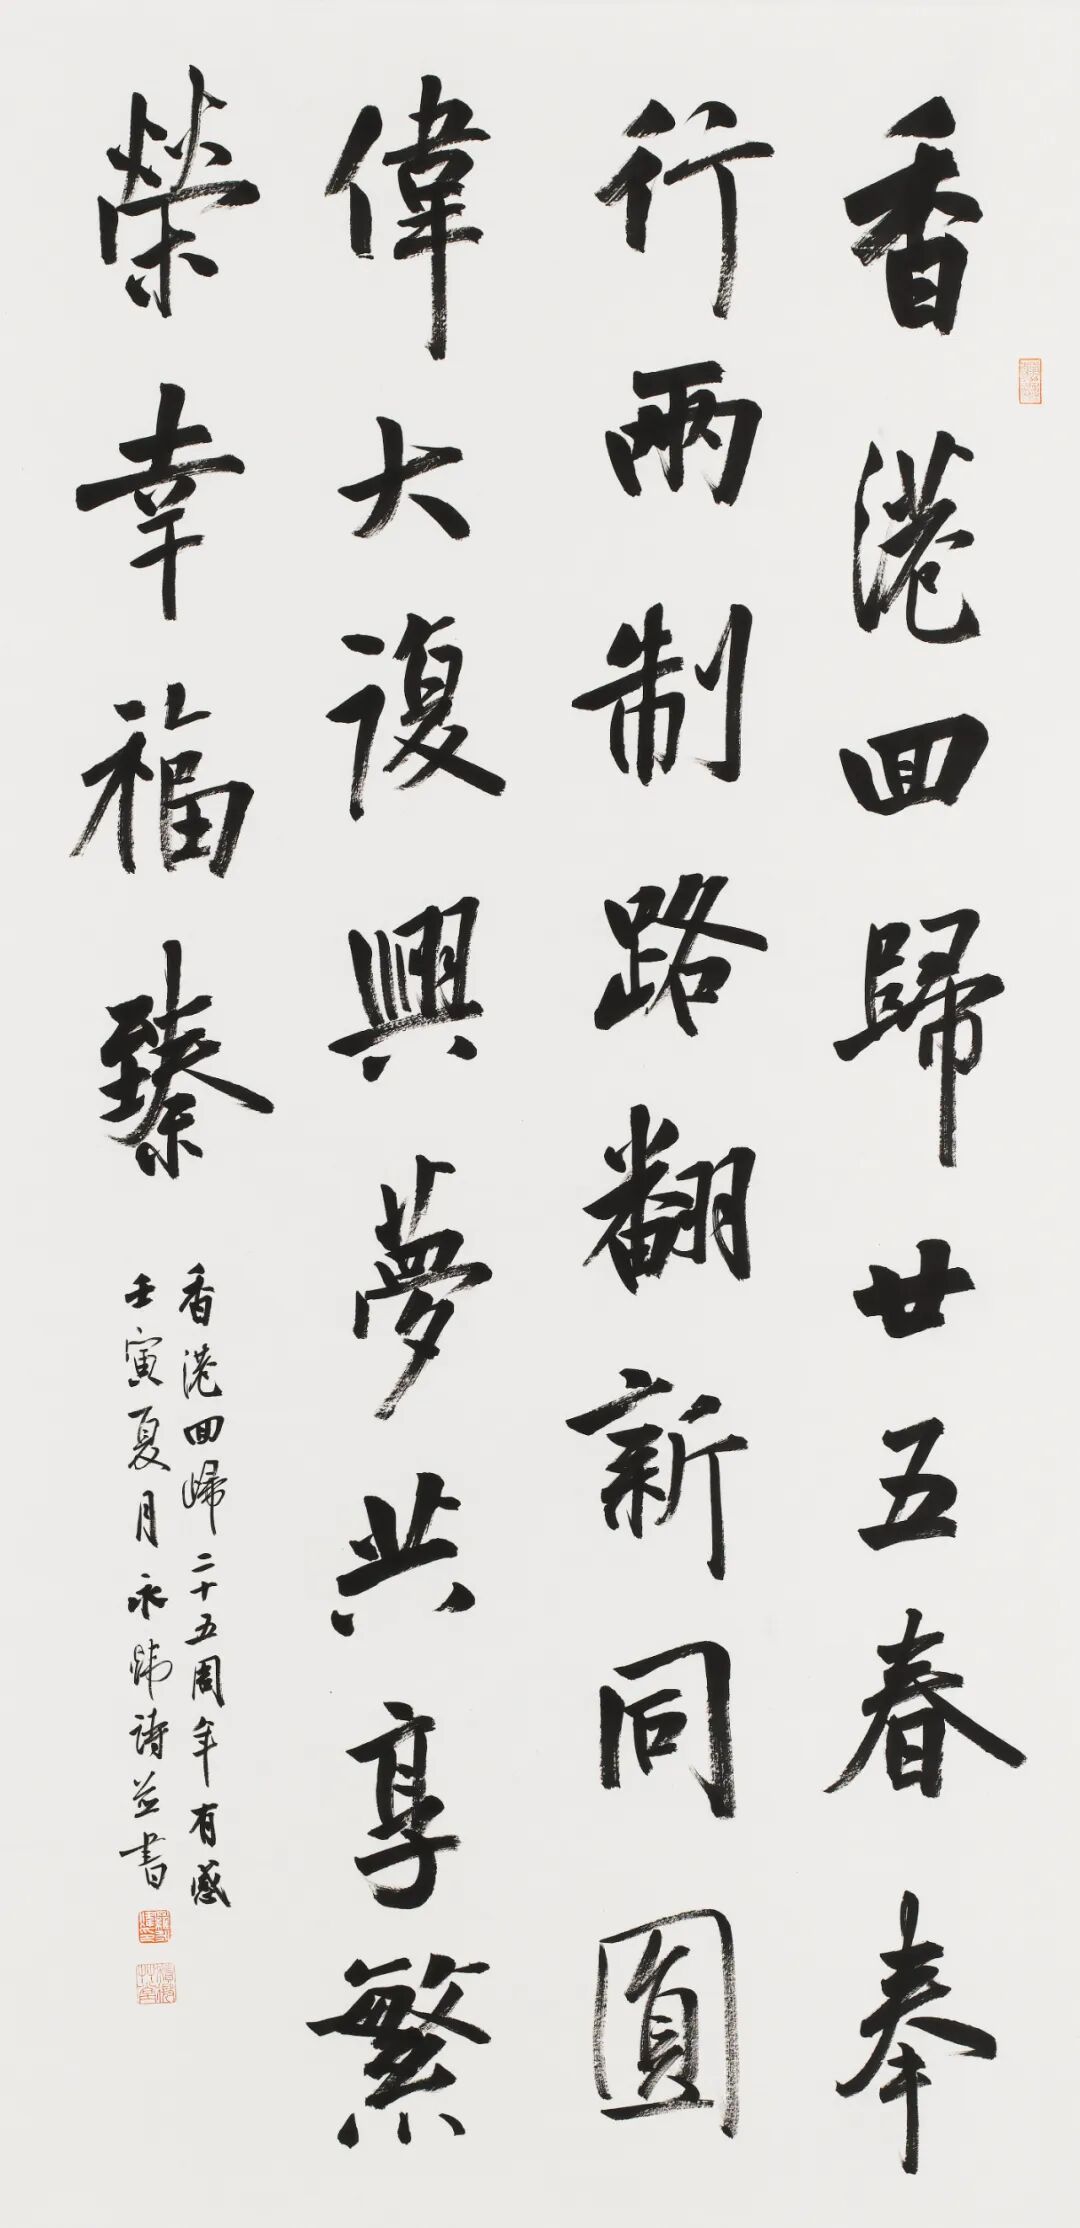 香港回歸廿五春奉
行兩制路翻新同圓
偉大復興夢共享繁
榮幸福臻
香港回歸二十五周年有感
壬寅夏月永炜诗并書